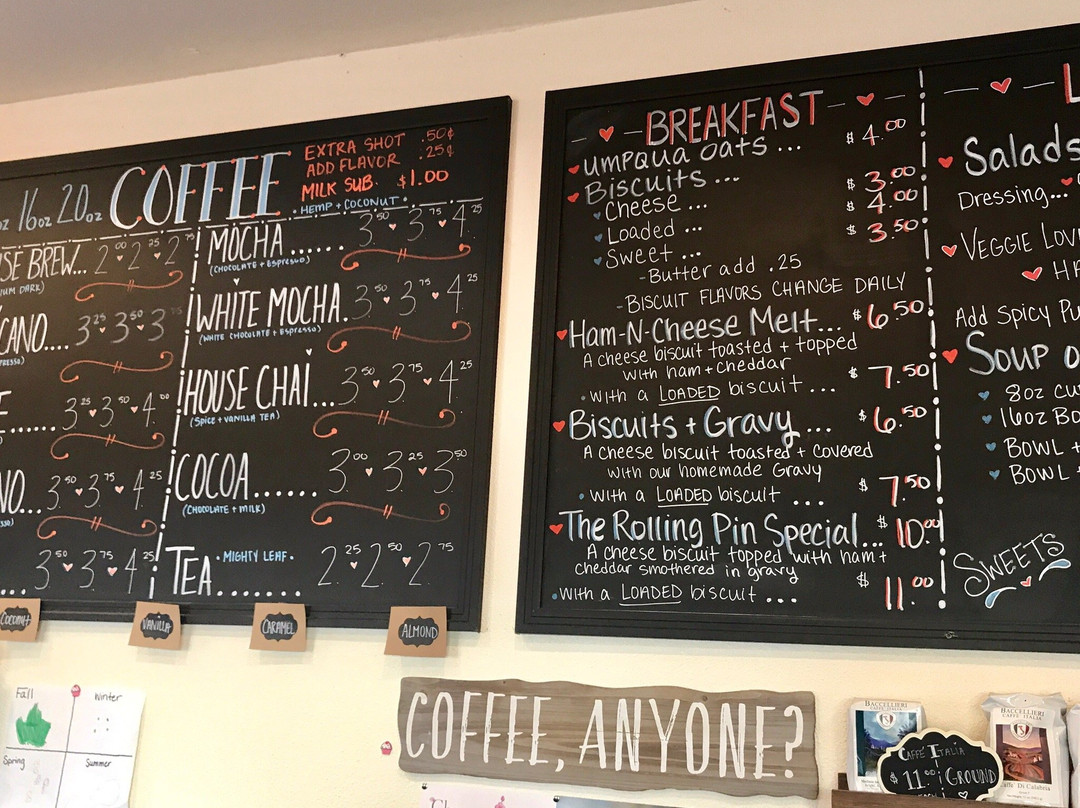 16oz 20oz COFFEE
EXTRA SHOT .50¢
ADD FLAVOR .25¢
MILK SUB. $1.00
• HEMP + COCONUT •
SE BREW... 2.00 2.25 2.75
UM DARK)
CANO.... 3.25 3.50 3.75
PRESSO)
3.25 3.50 4.00
NO... 3.50 3.75 4.25
3.50 3.75 4.25
MOCHA...... 3.50 3.75 4.25
(CHOCOLATE + ESPRESSO)
WHITE MOCHA. 3.50 3.75 4.25
(WHITE CHOCOLATE + ESPRESSO)
HOUSE CHAI... 3.50 3.75 4.25
(SPICE + VANILLA TEA)
COCOA...... 3.00 3.25 3.50
(CHOCOLATE + MILK)
TEA....... • MIGHTY LEAF • 2.25 2.50 2.75
COCONUT
VANILLA
CARAMEL
ALMOND
BREAKFAST
Umpqua Oats ... $4.00
Biscuits ...
Cheese ... $3.00
Loaded ... $4.00
Sweet ... $3.50
- Butter add .25
- BISCUIT FLAVORS CHANGE DAILY
Ham-N-Cheese Melt... $6.50
A cheese biscuit toasted + topped
with ham + cheddar
• with a LOADED biscuit ... $7.50
Biscuits + Gravy ... $6.50
A cheese biscuit toasted + covered
with our homemade Gravy
• with a LOADED biscuit ... $7.50
The Rolling Pin Special... $10.00
A cheese biscuit topped with ham +
cheddar smothered in gravy
• with a LOADED biscuit ... $11.00
L
Salads
Dressing...
VEGGIE LOV
HA
Add Spicy Pu
Soup o
8oz cu
16oz Bo
BOWL +
BOWL
SWEETS
Fall
Winter
Spring
Summer
COFFEE, ANYONE?
BACCELLIERI
CAFFÈ ITALIA
BACCELLIERI
CAFFÈ ITALIA
Caffè Di Calabria
CAFFÈ ITALIA
$11.00 GROUND